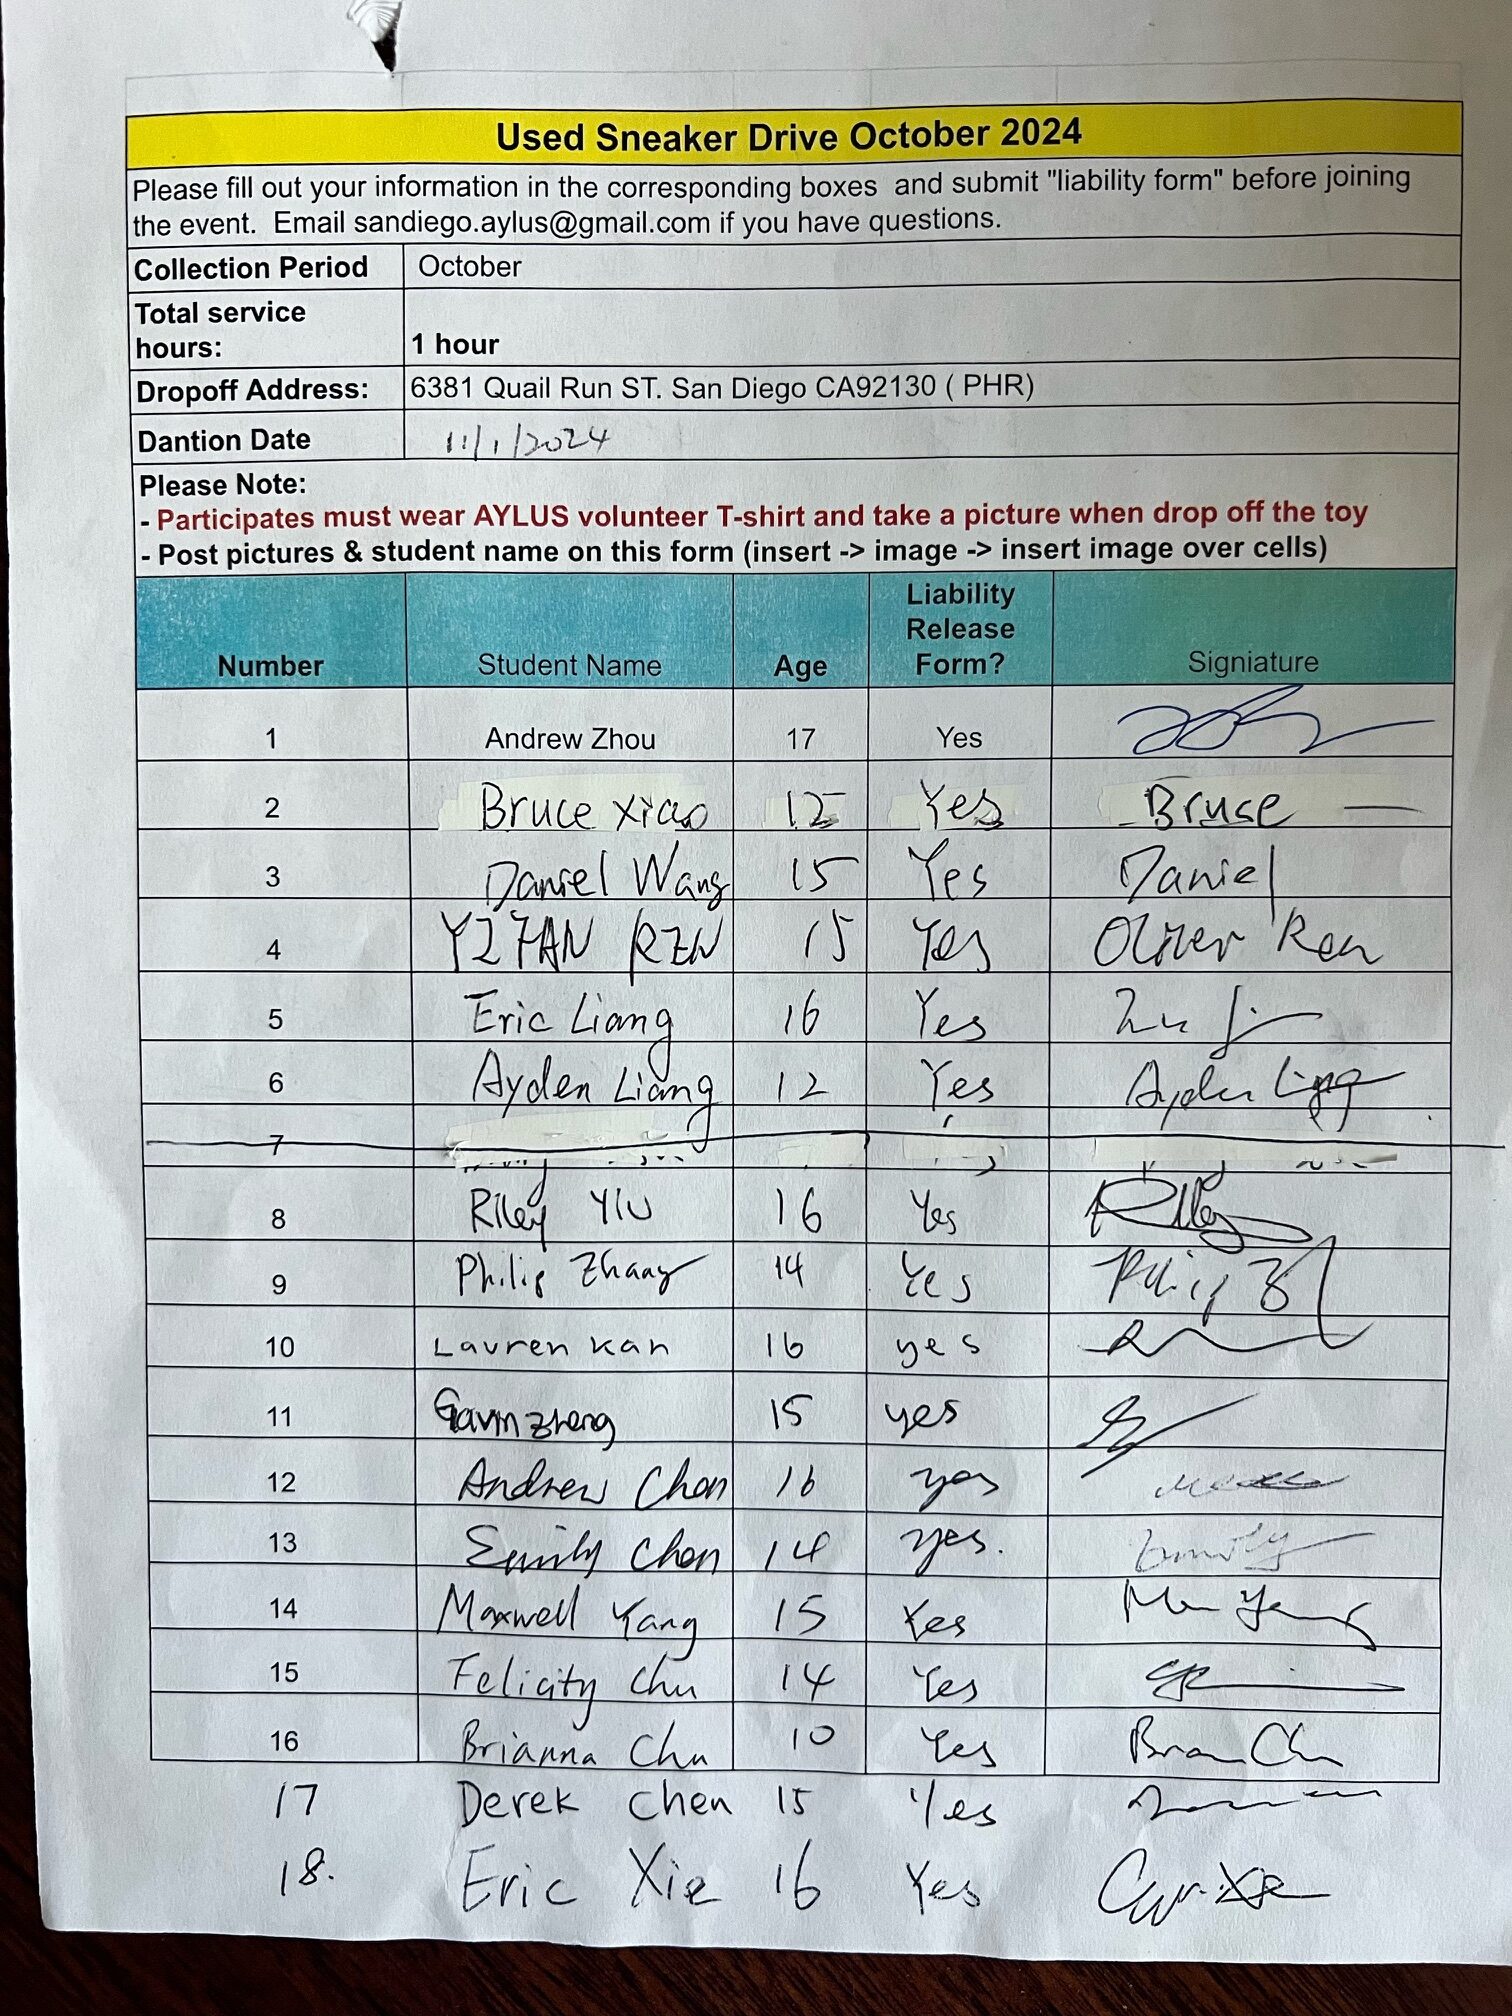 Used Sneaker Drive October 2024
Please fill out your information in the corresponding boxes and submit "liability form" before joining
the event. Email sandiego.aylus@gmail.com if you have questions.
Collection Period October
Total service
hours: 1 hour
Dropoff Address: 6381 Quail Run ST. San Diego CA92130 ( PHR)
Dantion Date 11/1/2024
Please Note:
- Participates must wear AYLUS volunteer T-shirt and take a picture when drop off the toy
- Post pictures & student name on this form (insert -> image -> insert image over cells)
Number Student Name Age Liability Release Form? Signiature
1 Andrew Zhou 17 Yes
2 Bruce Xiao 12 Yes Bruce
3 Daniel Wang 15 Yes Daniel
4 YIFAN REN 15 Yes Oliver Ren
5 Eric Liang 16 Yes
6 Ayden Liang 12 Yes Ayden Liang
7
8 Riley YIU 16 Yes Riley
9 Philip Zhang 14 Yes Philip Z
10 Lauren Kan 16 yes
11 Gavin Zheng 15 yes
12 Andrew Chen 16 yes
13 Emily Chen 14 yes. Emily
14 Maxwell Yang 15 Yes Max Yang
15 Felicity Chu 14 Yes
16 Brianna Chu 10 Yes Brian Chu
17 Derek Chen 15 Yes
18. Eric Xie 16 Yes